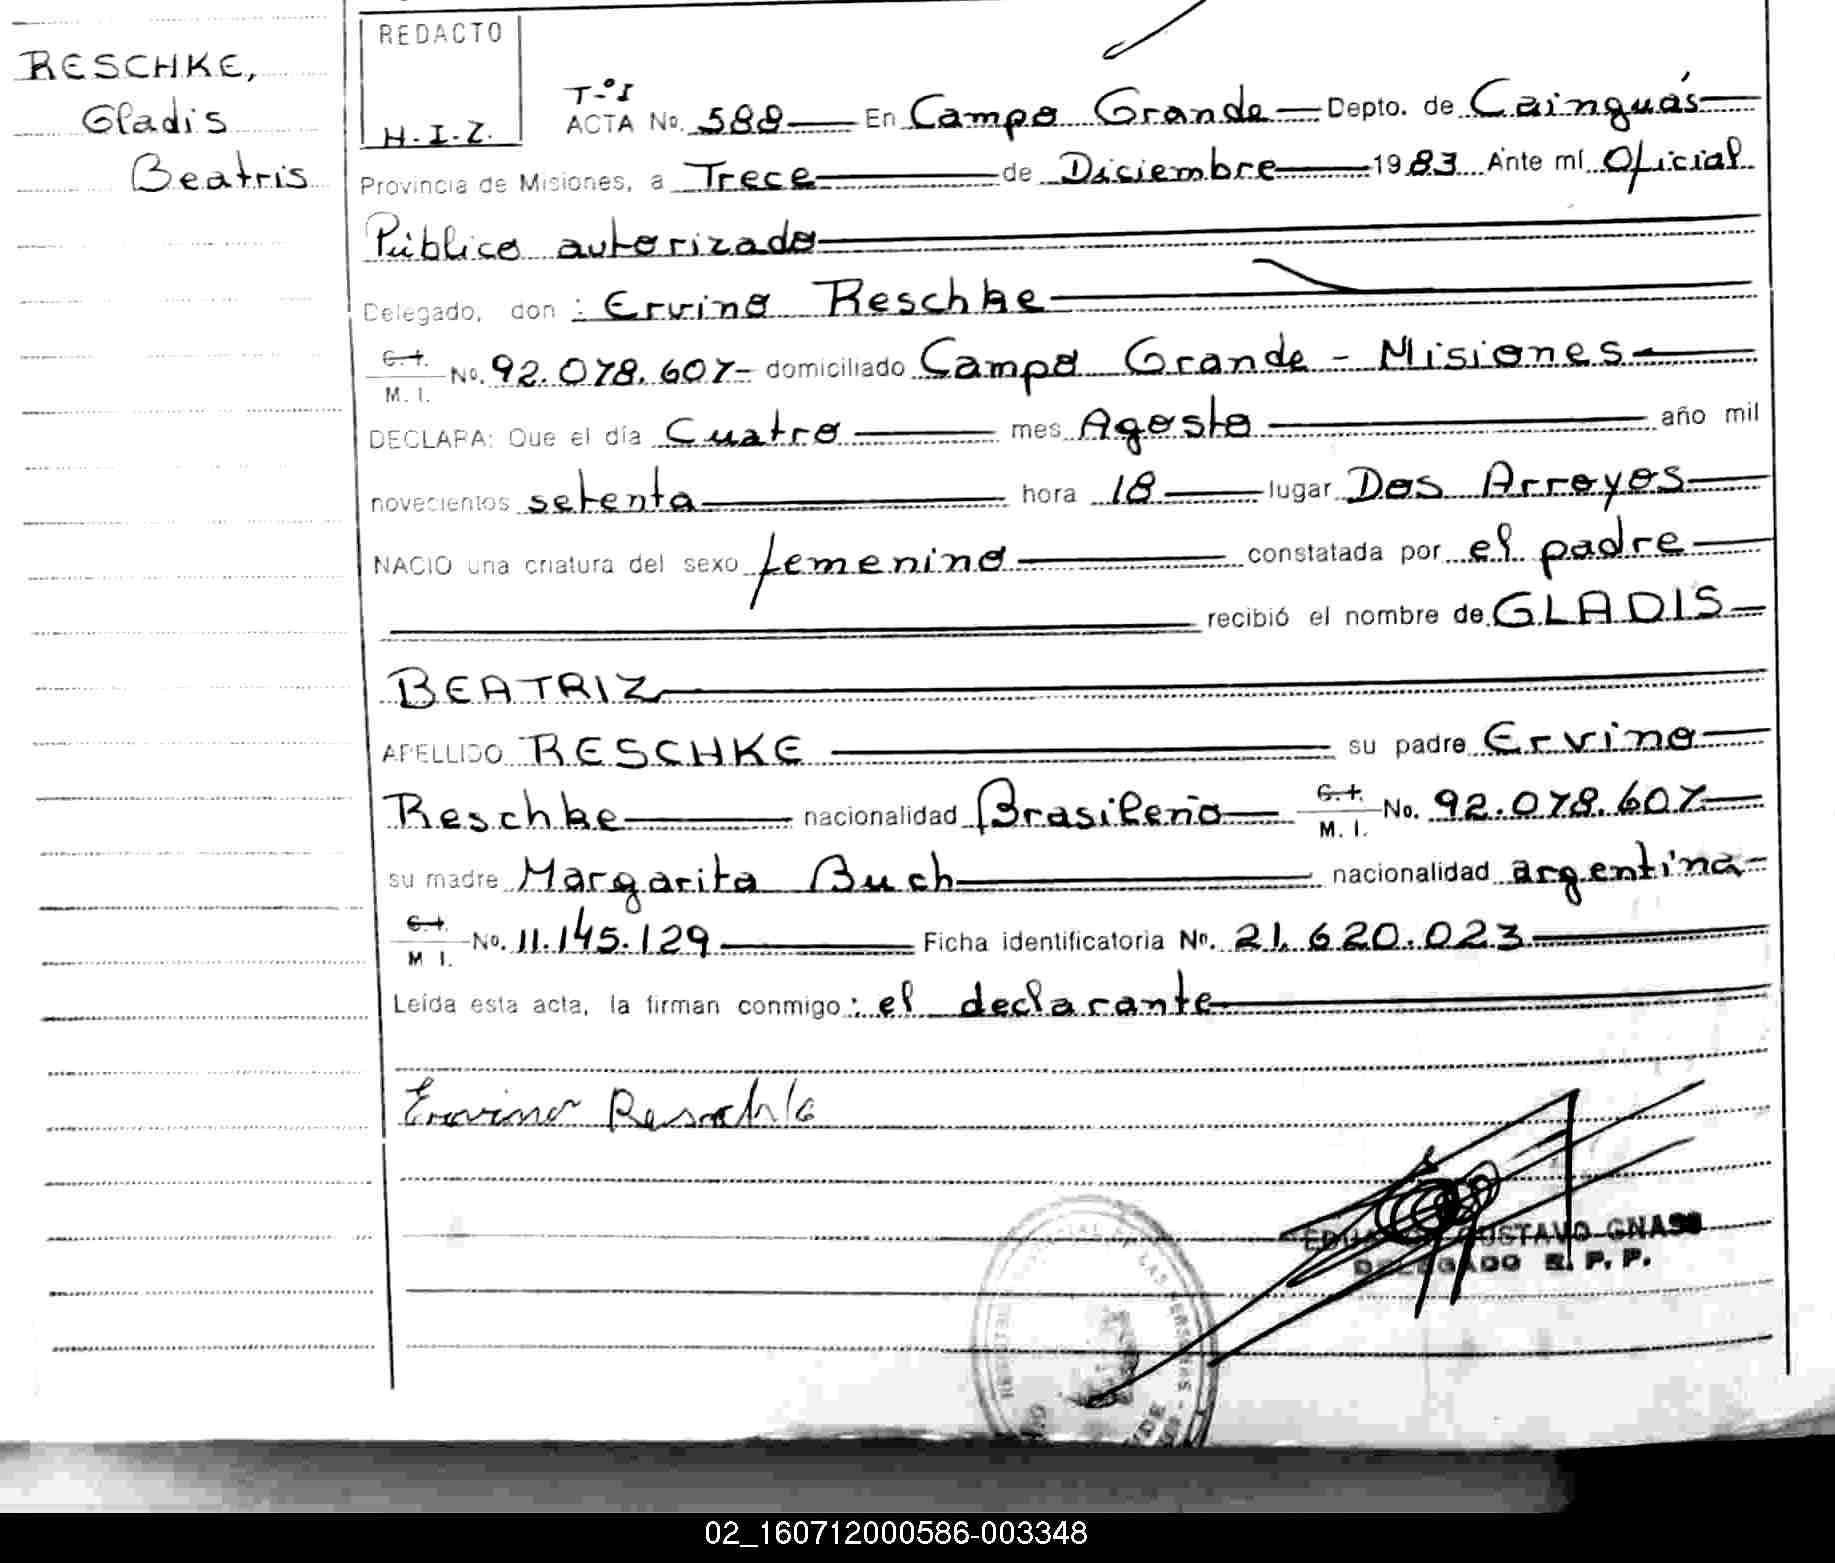 RESCHKE,
Gladis
Beatris
REDACTO
H.I.Z.
T-º I
ACTA No. 588 En Campo Grande Depto. de Cainguás
Provincia de Misiones, a Trece de Diciembre 1983 Ante mí Oficial
Público autorizado
Delegado, don : Ervino Reschke
C. I. M. I. No. 92.078.607- domiciliado Campo Grande - Misiones
DECLARA: Que el día Cuatro mes Agosto año mil
novecientos setenta hora 18 lugar Dos Arroyos
NACIO una criatura del sexo femenino constatada por el padre
recibió el nombre de GLADIS
BEATRIZ
APELLIDO RESCHKE su padre Ervino
Reschke nacionalidad Brasileño C. I. M. I. No. 92.078.607
su madre Margarita Buch nacionalidad argentina
C. I. M I. No. 11.145.129 Ficha identificatoria No. 21.620.023
Leída esta acta, la firman conmigo : el declarante
Ervino Reschke
GUSTAVO GNASS
DELEGADO R. P. P.
DE LAS PERSONAS
02_160712000586-003348